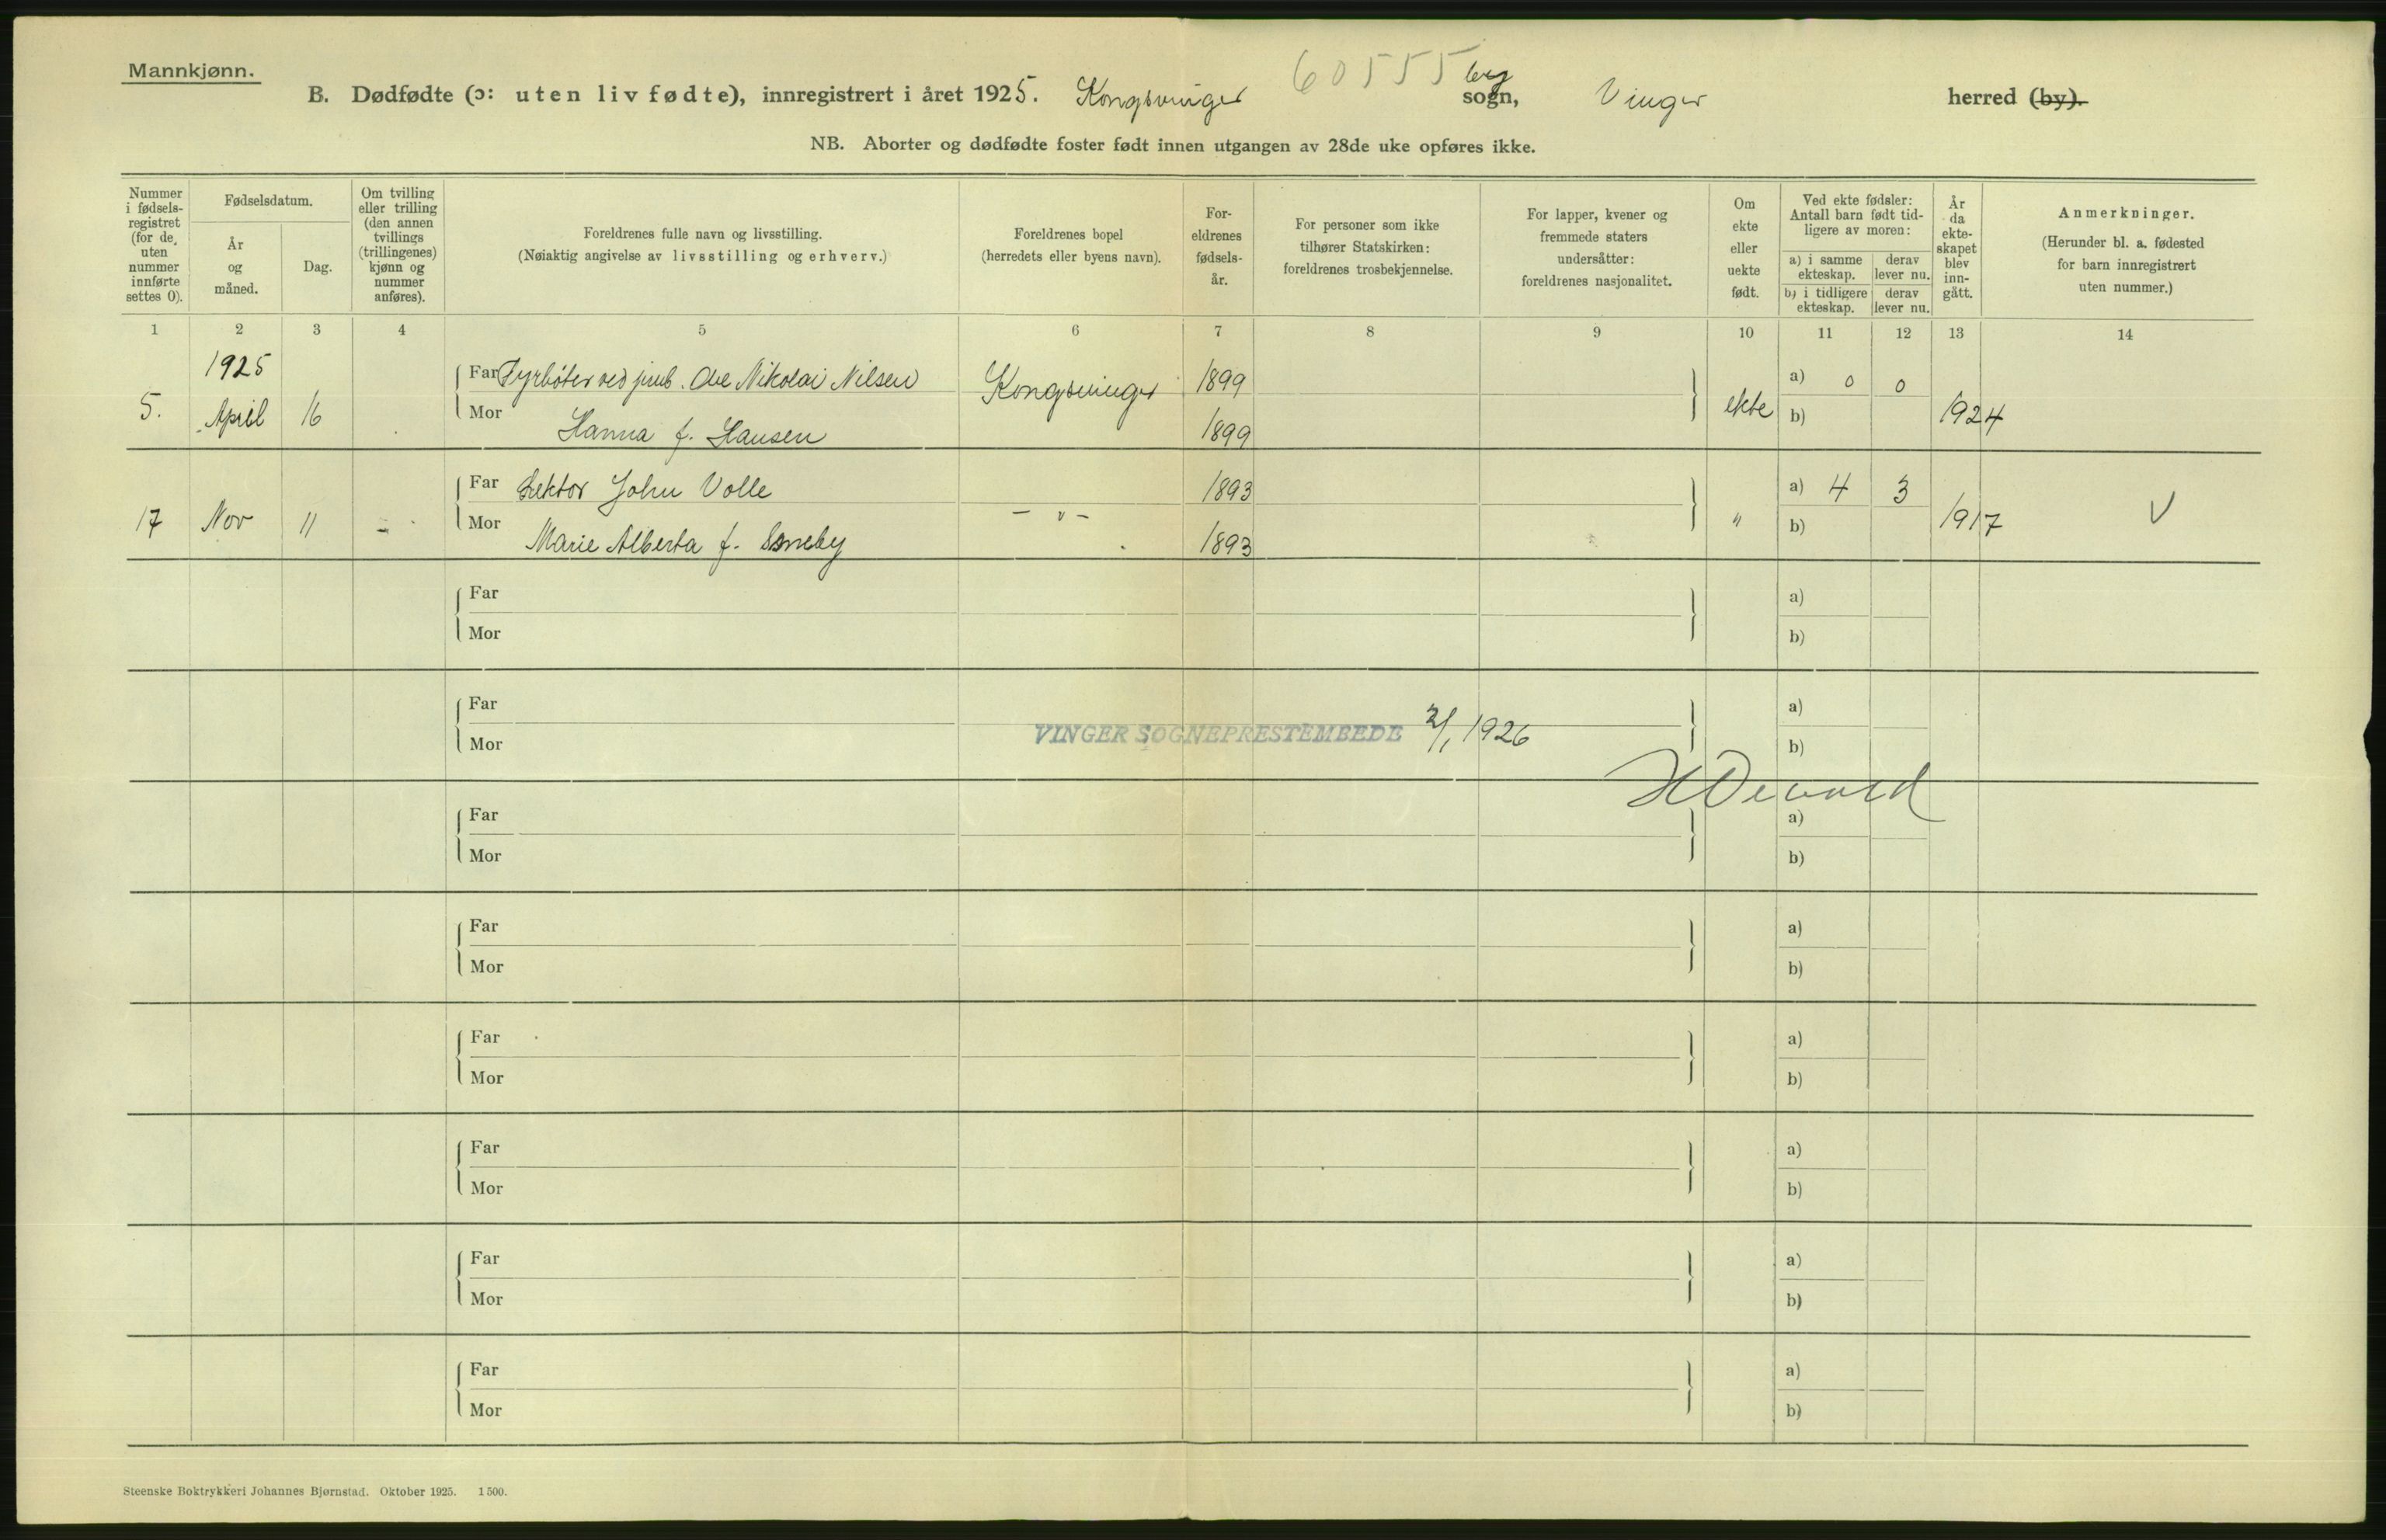 Mannkjønn.
60555
B. Dødfødte (ɔ: uten liv fødte), innregistrert i året 1925. Kongsvinger by sogn, Vinger herred (by).
NB. Aborter og dødfødte foster født innen utgangen av 28de uke opføres ikke.
Nummer i fødselsregistret (for de uten nummer innførte settes 0).
Fødselsdatum.
År og måned.
Dag.
Om tvilling eller trilling (den annen tvillings (trillingenes) kjønn og nummer anføres).
Foreldrenes fulle navn og livsstilling.
(Nøiaktig angivelse av livsstilling og erhverv.)
Foreldrenes bopel
(herredets eller byens navn).
Foreldrenes fødselsår.
For personer som ikke tilhører Statskirken: foreldrenes trosbekjennelse.
For lapper, kvener og fremmede staters undersåtter: foreldrenes nasjonalitet.
Om ekte eller uekte født.
Ved ekte fødsler: Antall barn født tidligere av moren:
a) i samme ekteskap. derav lever nu.
b) i tidligere ekteskap. derav lever nu.
År da ekteskapet blev inngått.
Anmerkninger.
(Herunder bl. a. fødested for barn innregistrert uten nummer.)
1 2 3 4 5 6 7 8 9 10 11 12 13 14
1925
Far Fyrbøter ved jernb. Ole Nikolai Nilsen Kongsvinger 1899 a) 0 0
5. April 16 Mor Hanna f. Hansen 1899 ekte b) 1924
Far Lektor John Volle 1893 a) 4 3
17 Nov 11 - Mor Marie Alberta f. - " - 1893 " b) 1917 V
Far a)
Mor b)
Far a)
VINGER SOGNEPRESTEMBEDE 2/1 1926
Mor b)
Far a)
Mor b)
Far a)
Mor b)
Far a)
Mor b)
Far a)
Mor b)
Far a)
Mor b)
Far a)
Mor b)
Steenske Boktrykkeri Johannes Bjørnstad. Oktober 1925. 1500.